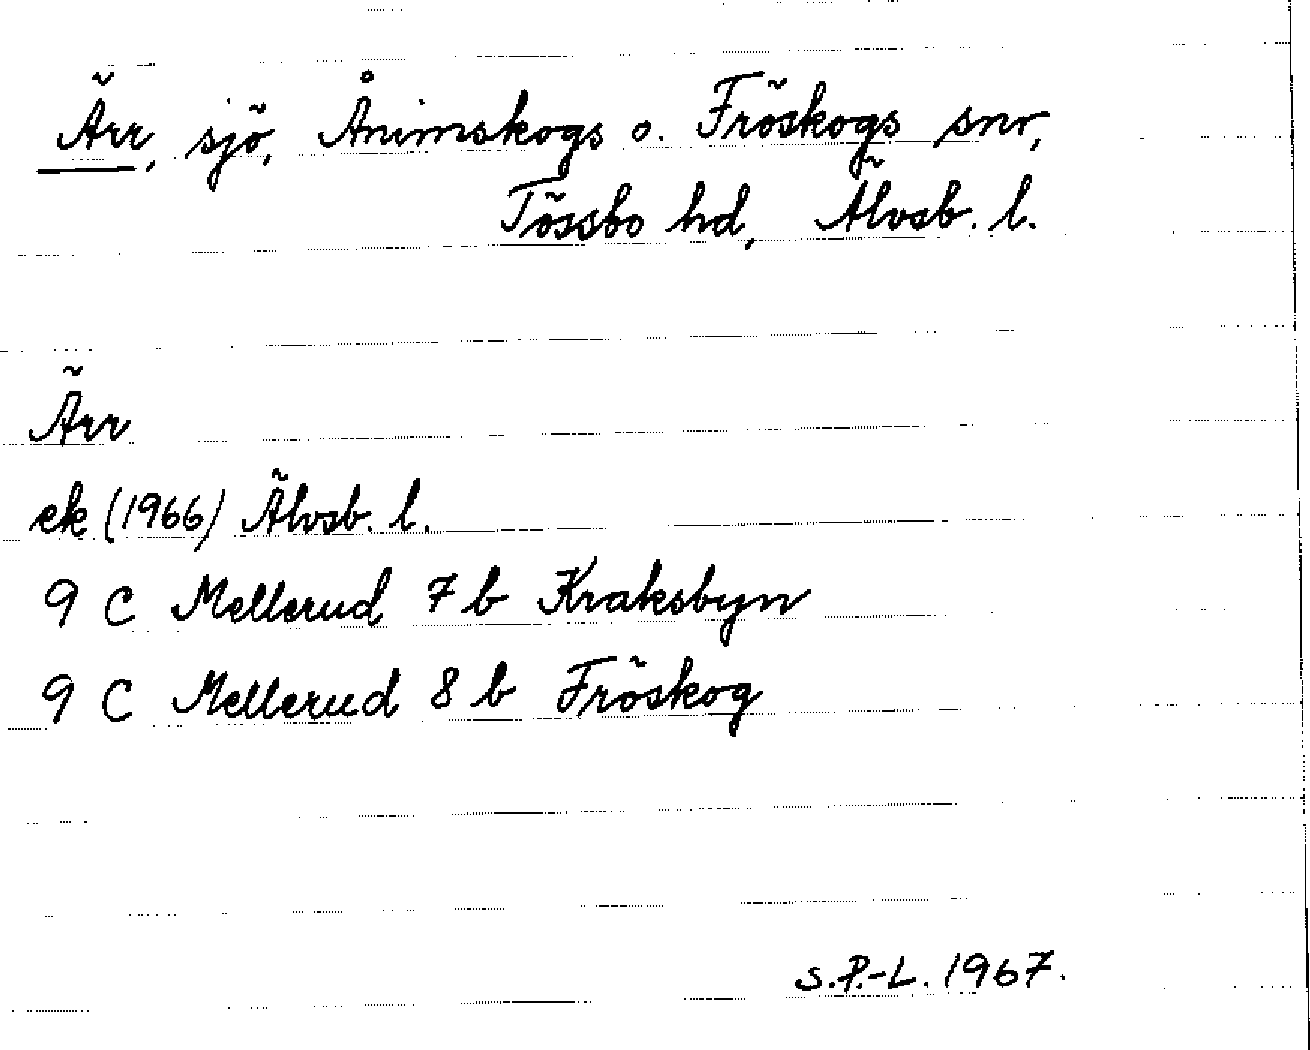 Ärr, sjö, Ånimskogs o. Fröskogs snr,
Tössbo hd, Älvsb. l.
Ärr
ek (1966) Älvsb. l.
9 C Mellerud 7 b Kraksbyn
9 C Mellerud 8 b Fröskog
S.P.-L. 1967.